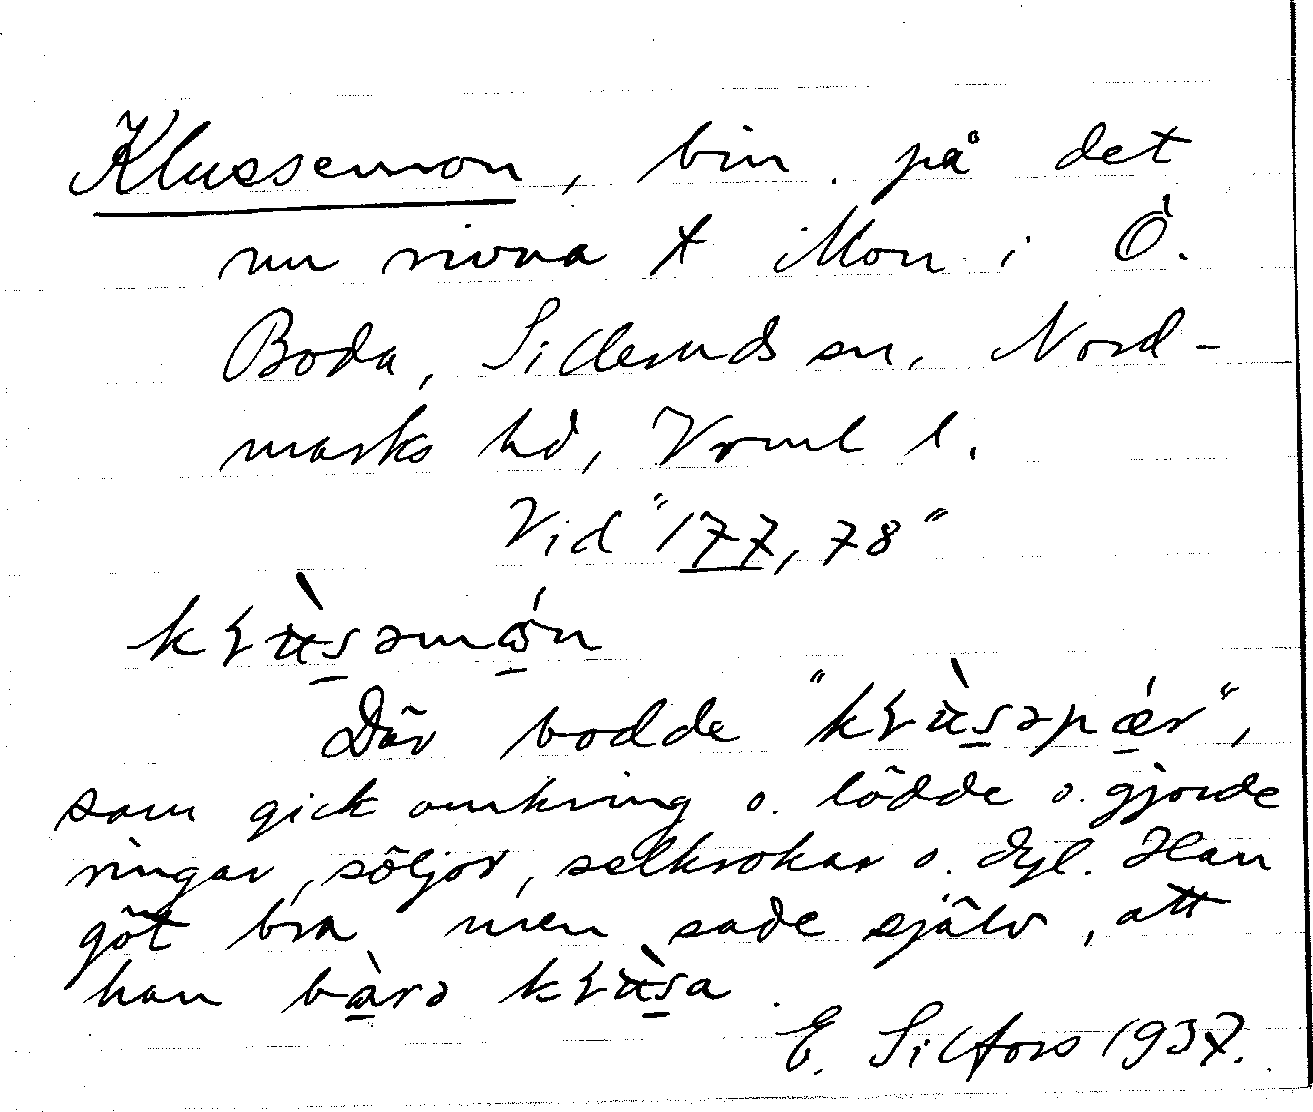 Klussemon, bin. på det
nu rivna t Mon i Ö.
Boda, Sillerud sn, Nord-
marks hd, Vrml l.
Vid "177, 78"
kɽʉ̀səmǿn
Där bodde "kɽʉ̀səpǽr",
som gick omkring o. lödde o. gjorde
ringar, söljor, selkrokar o. dyl. Han
göt bra men sade själv, att
han bàrə kɽʉ̀sa.
E. Silfors 1937.